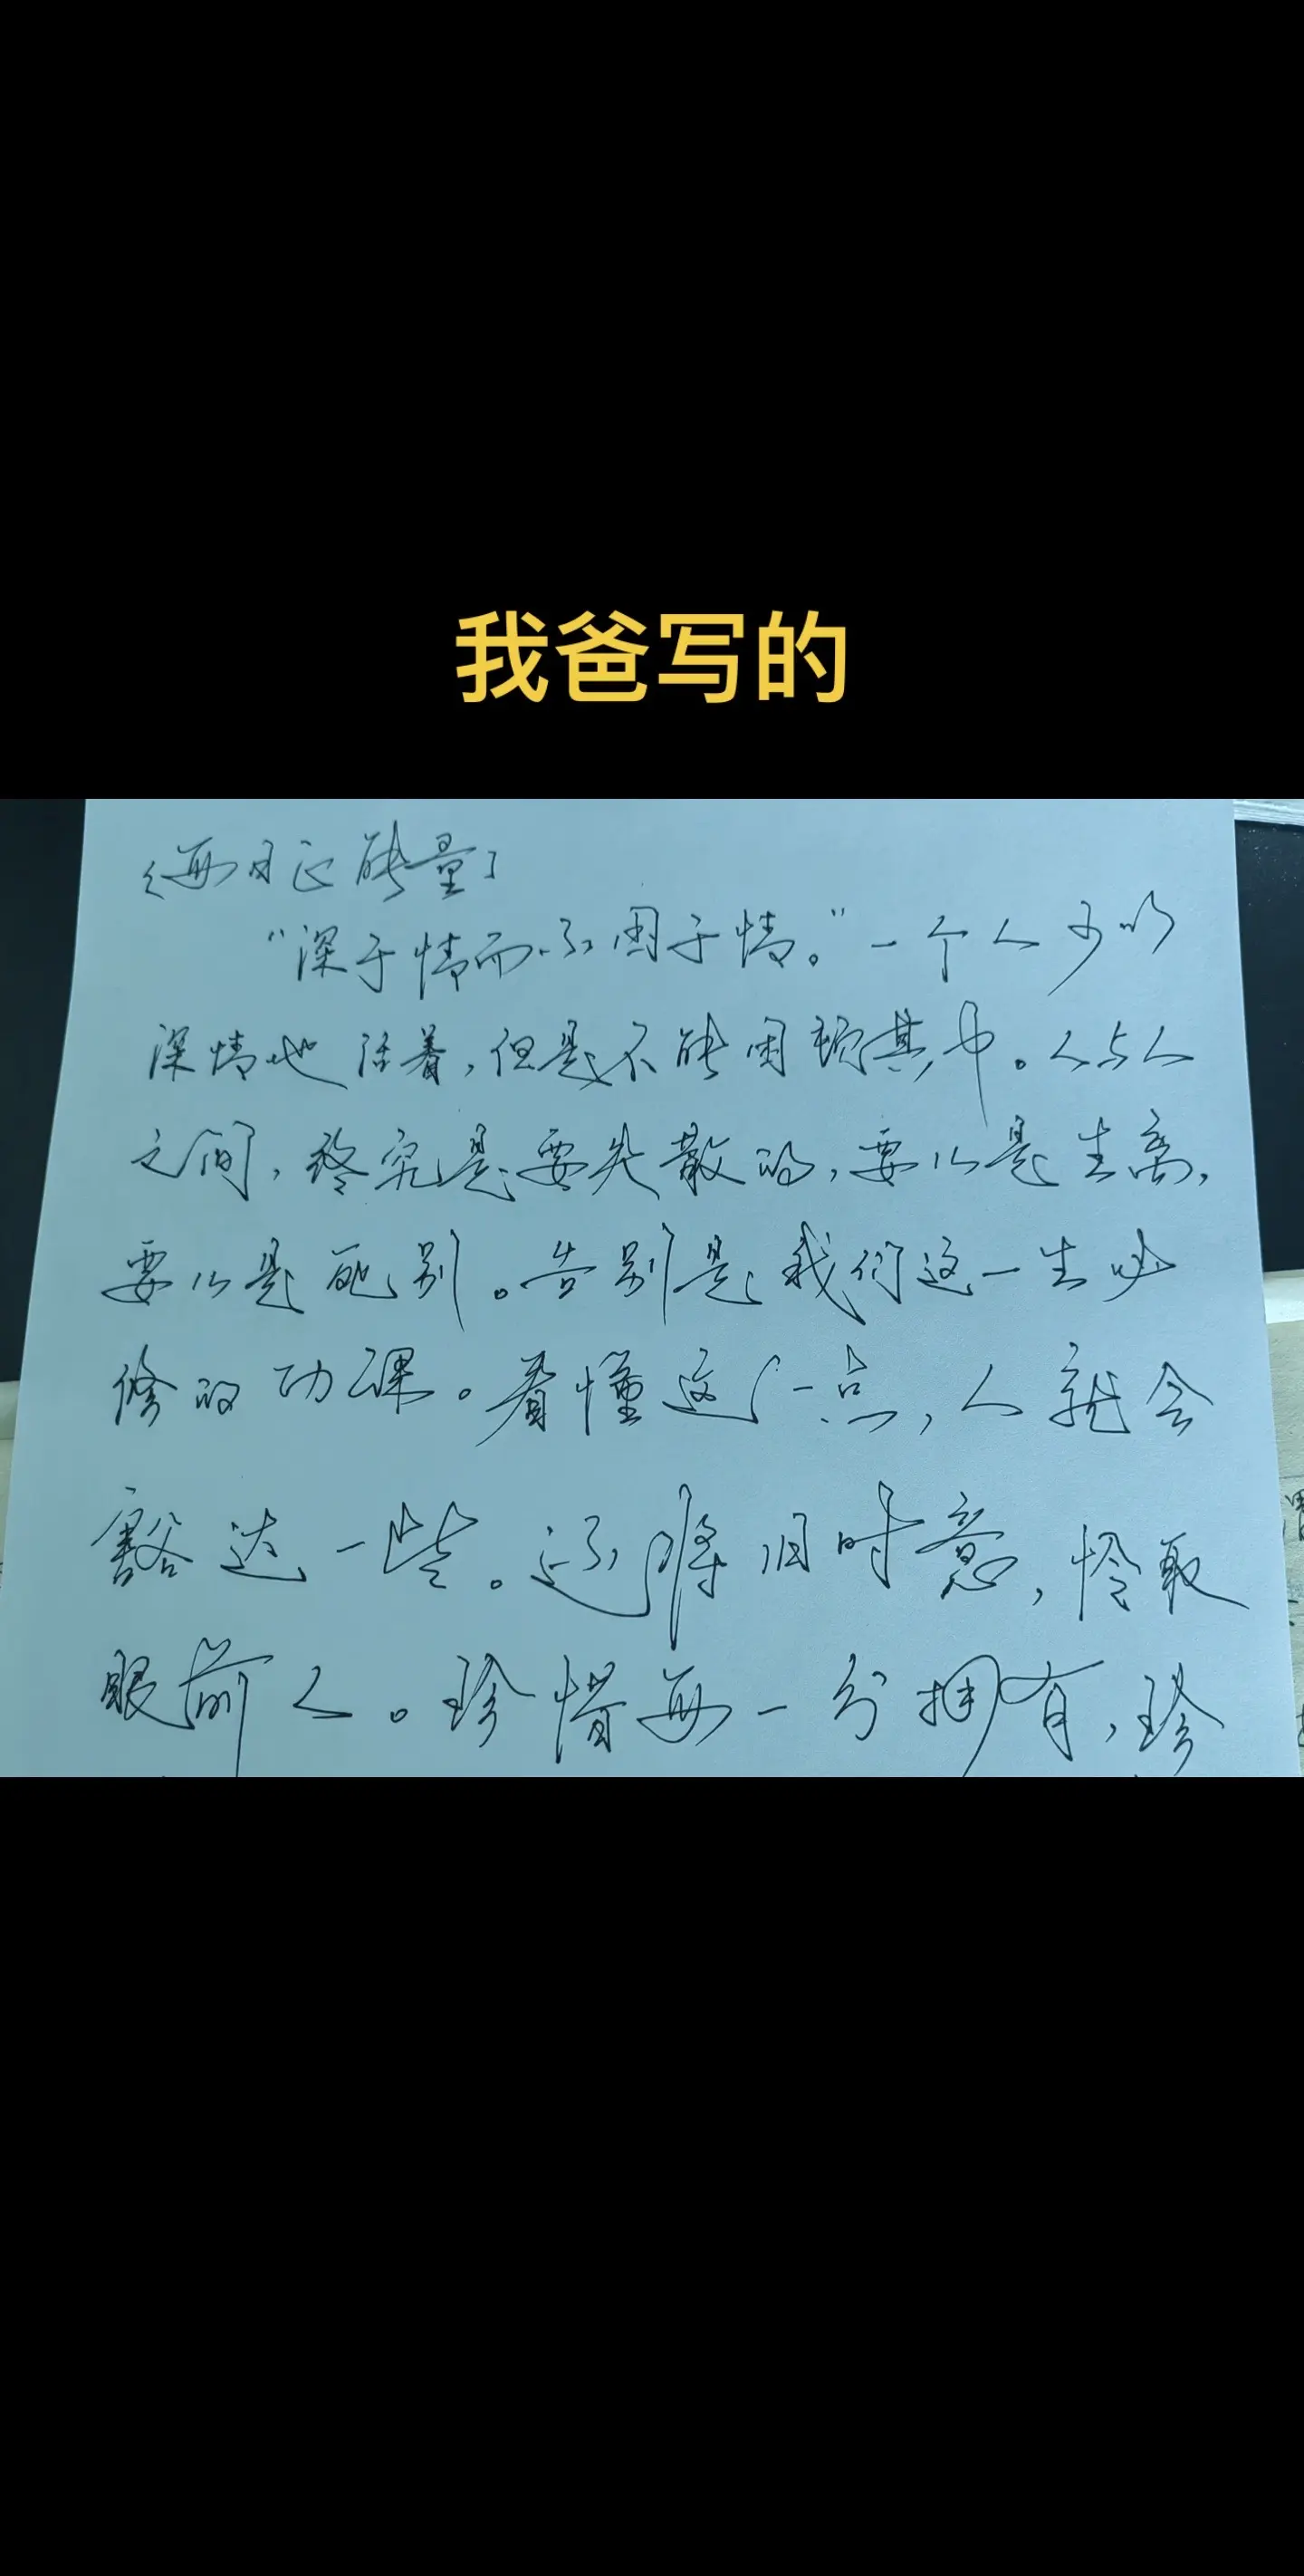 我爸写的
《每日正能量》
“深于情而不困于情。”一个人可以
深情地活着，但是不能困顿其中。人与人
之间，终究是要失散的，要么是生离，
要么是死别。告别是我们这一生必
修的功课。看懂这一点，人就会
豁达一些。还将旧时意，怜取
眼前人。珍惜每一份拥有，珍